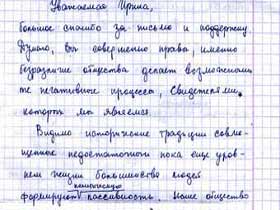 Уважаемая Ирина,
большое спасибо за письмо и поддержку
Думаю, вы совершенно правы, именно
безразличие общества делает возможными
те негативные процессы, свидетелями
которых мы являемся.
Видимо исторические традиции совме-
щенные недостаточного пока еще уров-
нем жизни большинства людей
формируют политическую пассивность. Наше общество